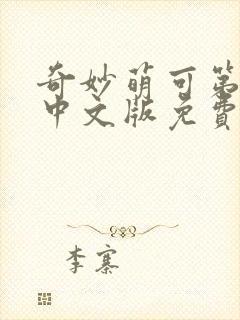 奇妙萌可第
中文版免费
李寨